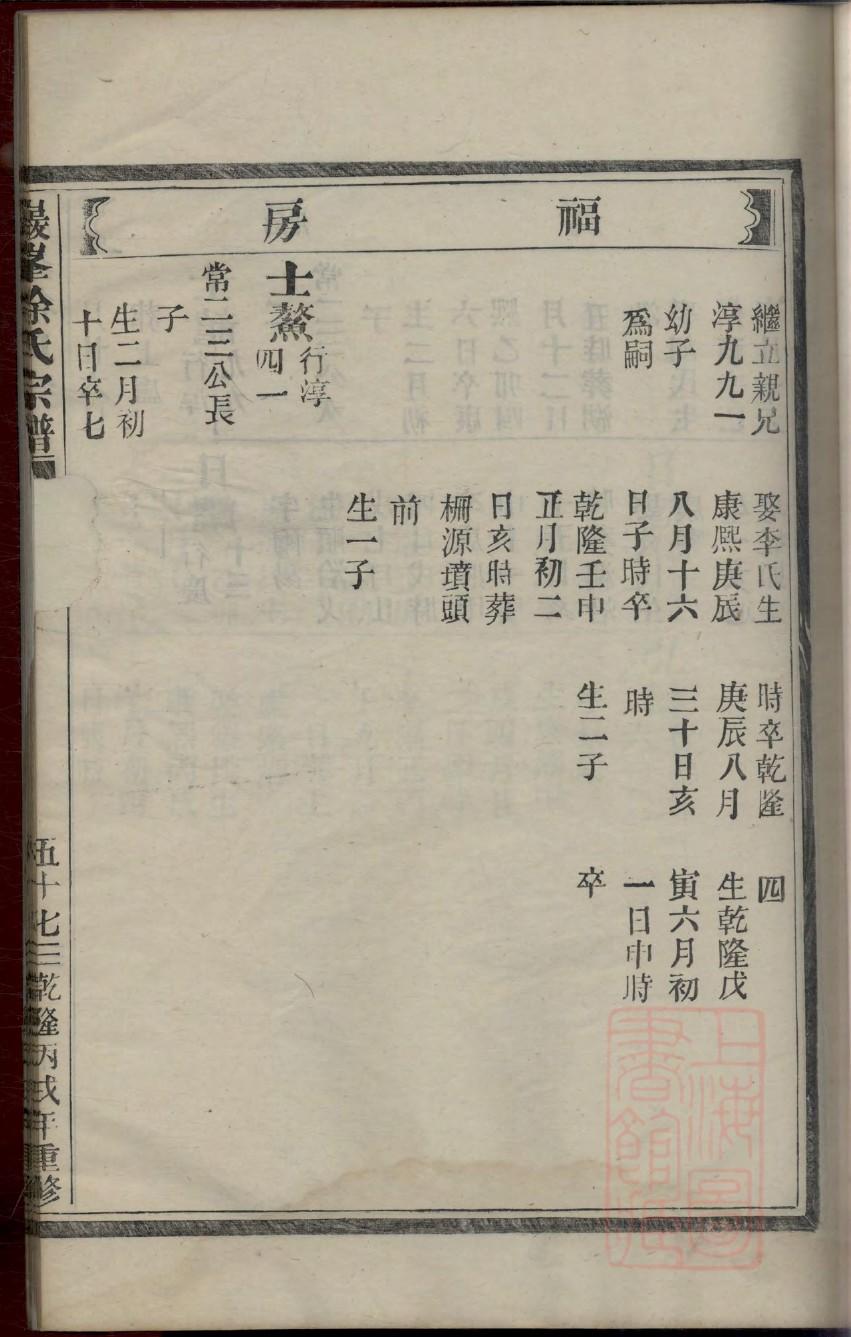 福房
繼立親兄
淳九九一
幼子
爲嗣
士鰲
行淳
四一
常二三公長
子
生二月初
十日卒七
娶李氏生
康熙庚辰
八月十六
日子時卒
乾隆壬申
正月初二
日亥時葬
柵源墳頭
前
生一子
時卒乾隆
庚辰八月
三十日亥
時
生二子
四
生乾隆戊
寅六月初
一日申時
卒
巖峯徐氏宗譜
五十七三
乾隆丙戌年重修
上海圖書館藏